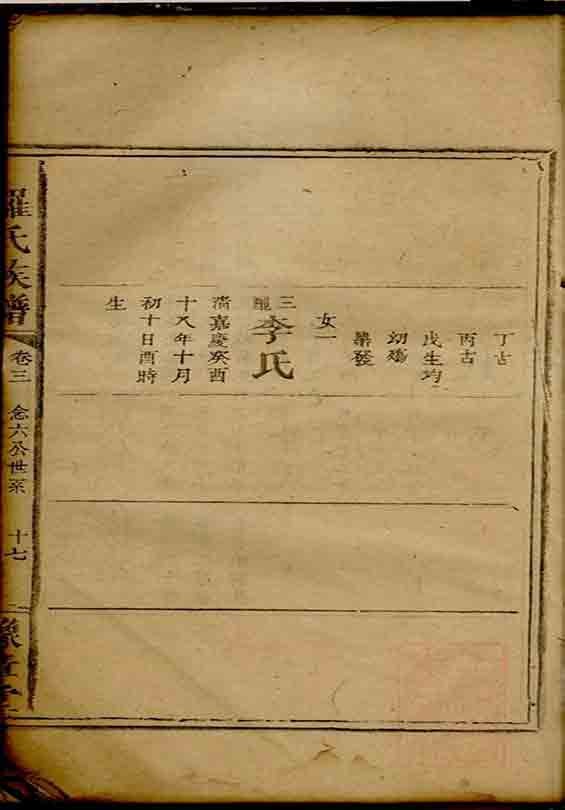 丁古
丙古
戊生均
幼殤
業發
女一
三龍
李氏
清嘉慶癸酉
十八年十月
初十日酉時
生
羅氏族譜
卷三
念六公世系
十七